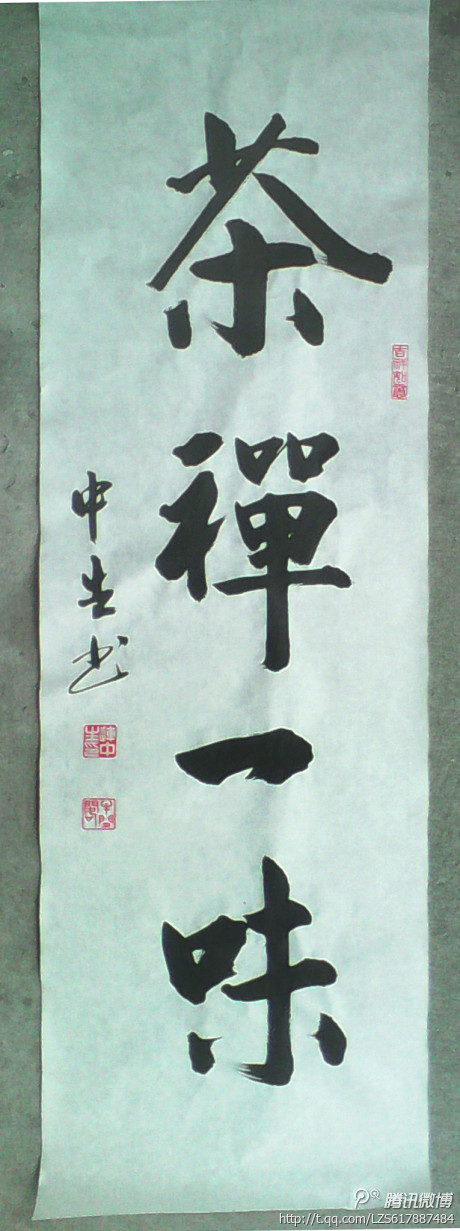 茶禪一味
中生书
吉祥如意
腾讯微博
http://t.qq.com/LZS617887484